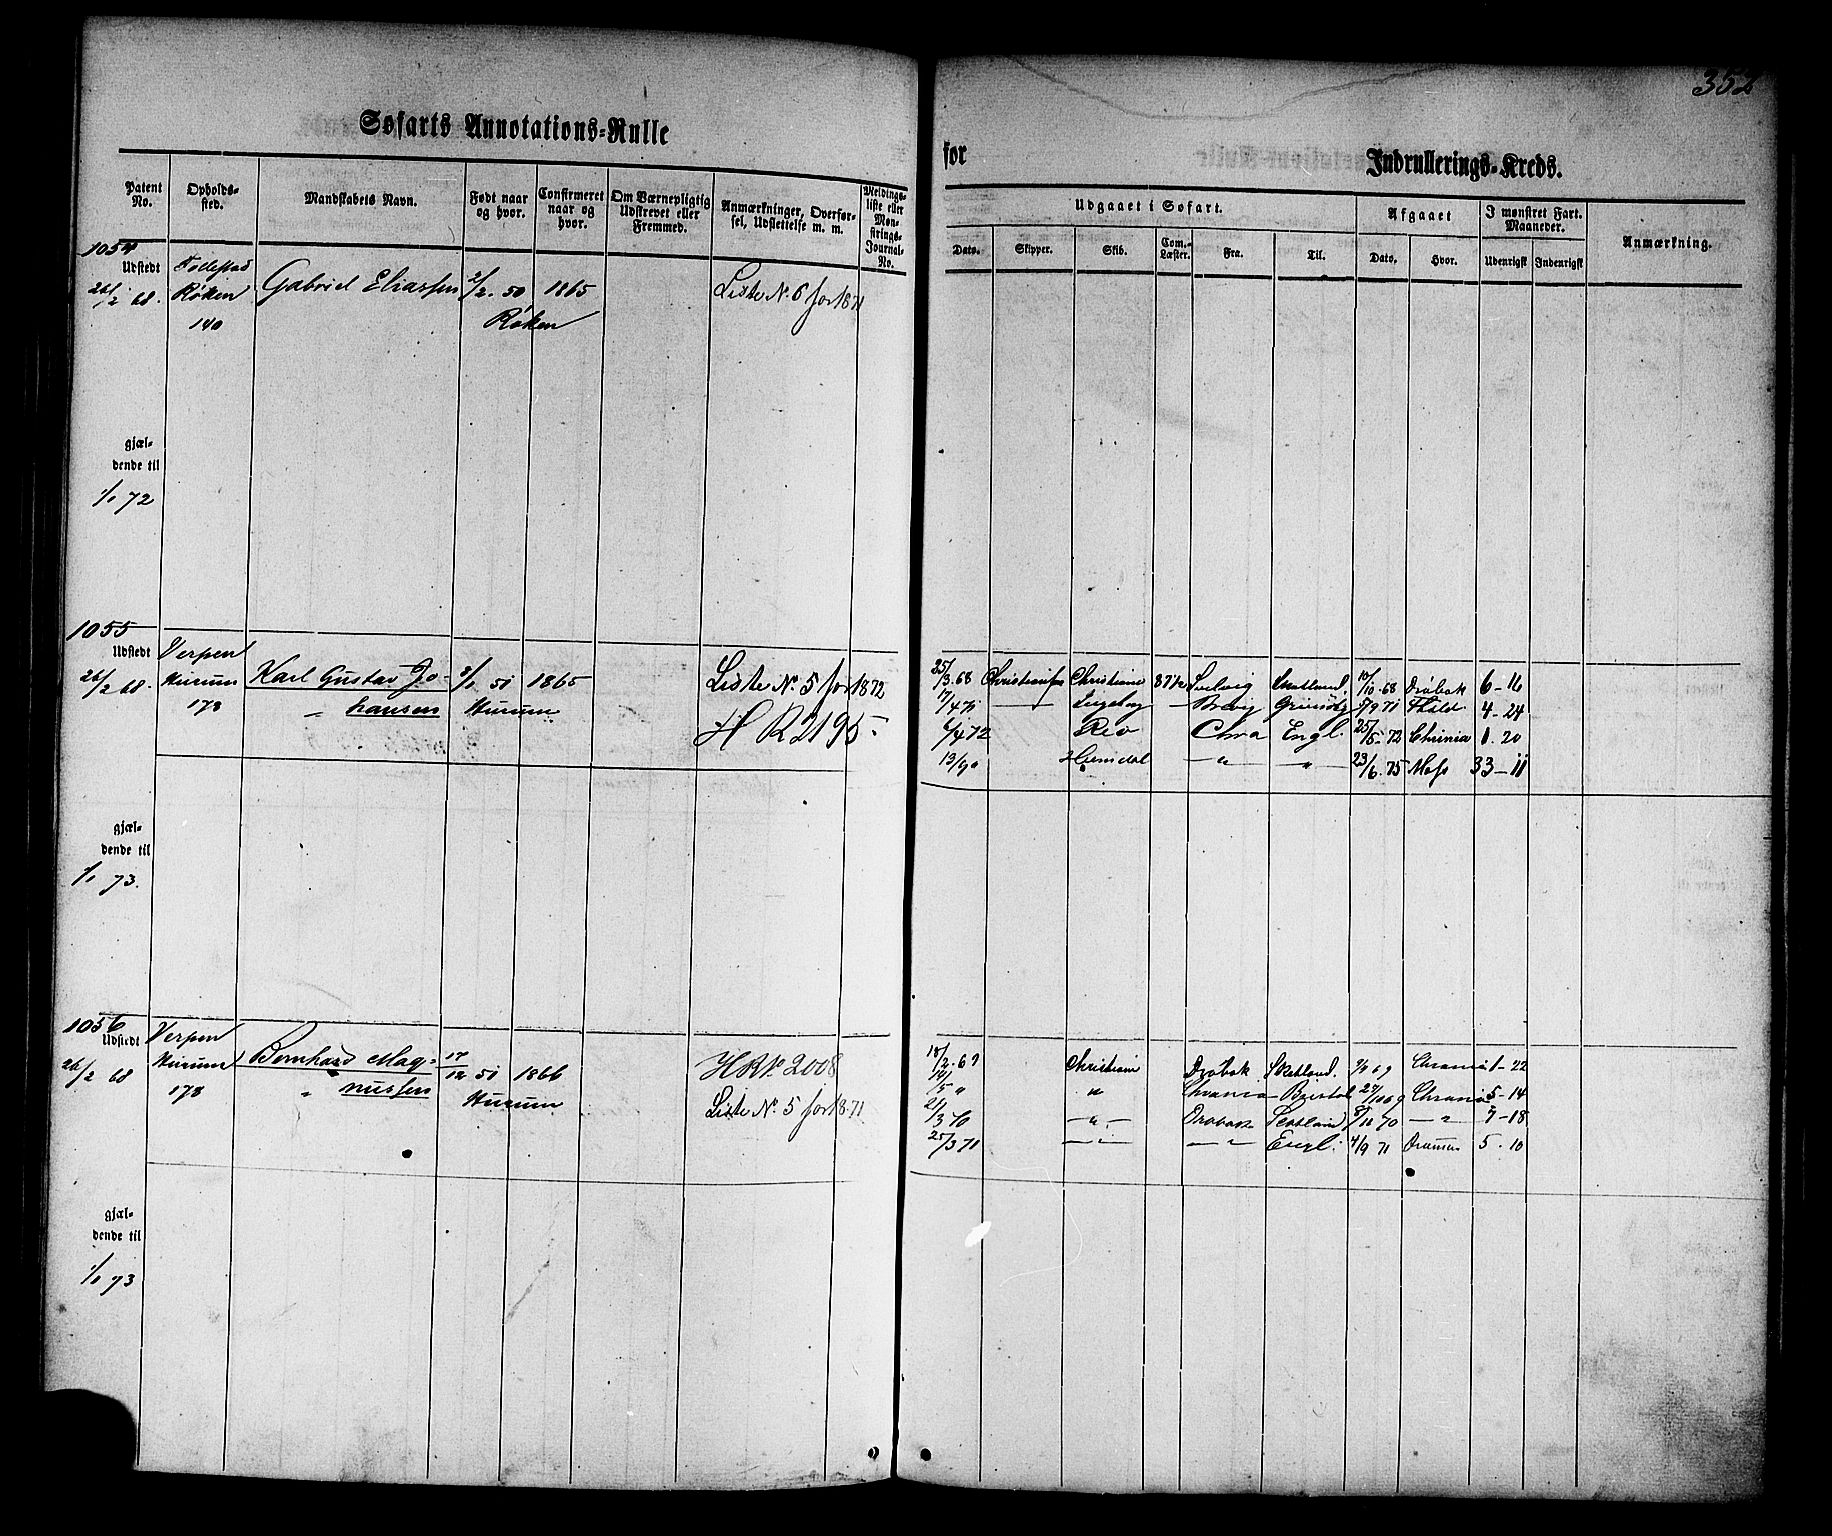 352
Søfarts Annotations-Rulle
for
Indrullerings-Kreds.
Patent No.
Opholds-sted.
Mandskabets Navn.
Født naar og hvor.
Confirmeret naar og hvor.
Om Værnepligtig Udskrevet eller Fremmed.
Anmærkninger, Overførsel, Udslettelse m. m.
Meldings-liste eller Mønstrings-Journal-No.
Udgaaet i Søfart.
Afgaaet
I mønstret Fart. Maaneder.
Anmærkning.
Dato.
Skipper.
Skib.
Com.-Læster.
Fra.
Til.
Dato.
Hvor.
Udenrigsk
Indenrigsk
1054
Udstedt
26/2 68.
Røken
140
Gabriel Eliassen
2/2. 50
Røken
1865
Liste No. 6 for 1871
gjæl-
dende til
1/1 72
1055
Udstedt
26/2 68.
Verpen
Hurum
178
Karl Gustav Jo-
" hansen
51
Hurum
1865
Liste No. 5 for 1872
H R 2195
25/3.68 Christiansen Christiane 87½ Svelvig Skotland. 10/10.68 Drøbak 6-16
17/4 71 4-24
6/4 72 Rio Chra Engl. 25/5-72 Chrania 1.20
13/9 " Heimdal -"- -"- 23/6.75 Moss 33-11
gjæl-
dende til
1/1 73.
1056
Udstedt
26/2 68
Verpen
Hurum
178
Bernhard Mag-
" nussen
17/12 51
Hurum
1866
HR No. 2008
Liste No. 5 for 1871
18/2.69 Christiane Drøbak Skotland. Chrania 1-22
" Chrania Bristol 27/10 69 Chrania 5-14
21/3 70 -"- Drøbak Scotland 70 -"- 7-18
25/3 71 -"- -"- Engl. 4/9 71 Dramen 5.10
gjæl-
dende til
1/1 73